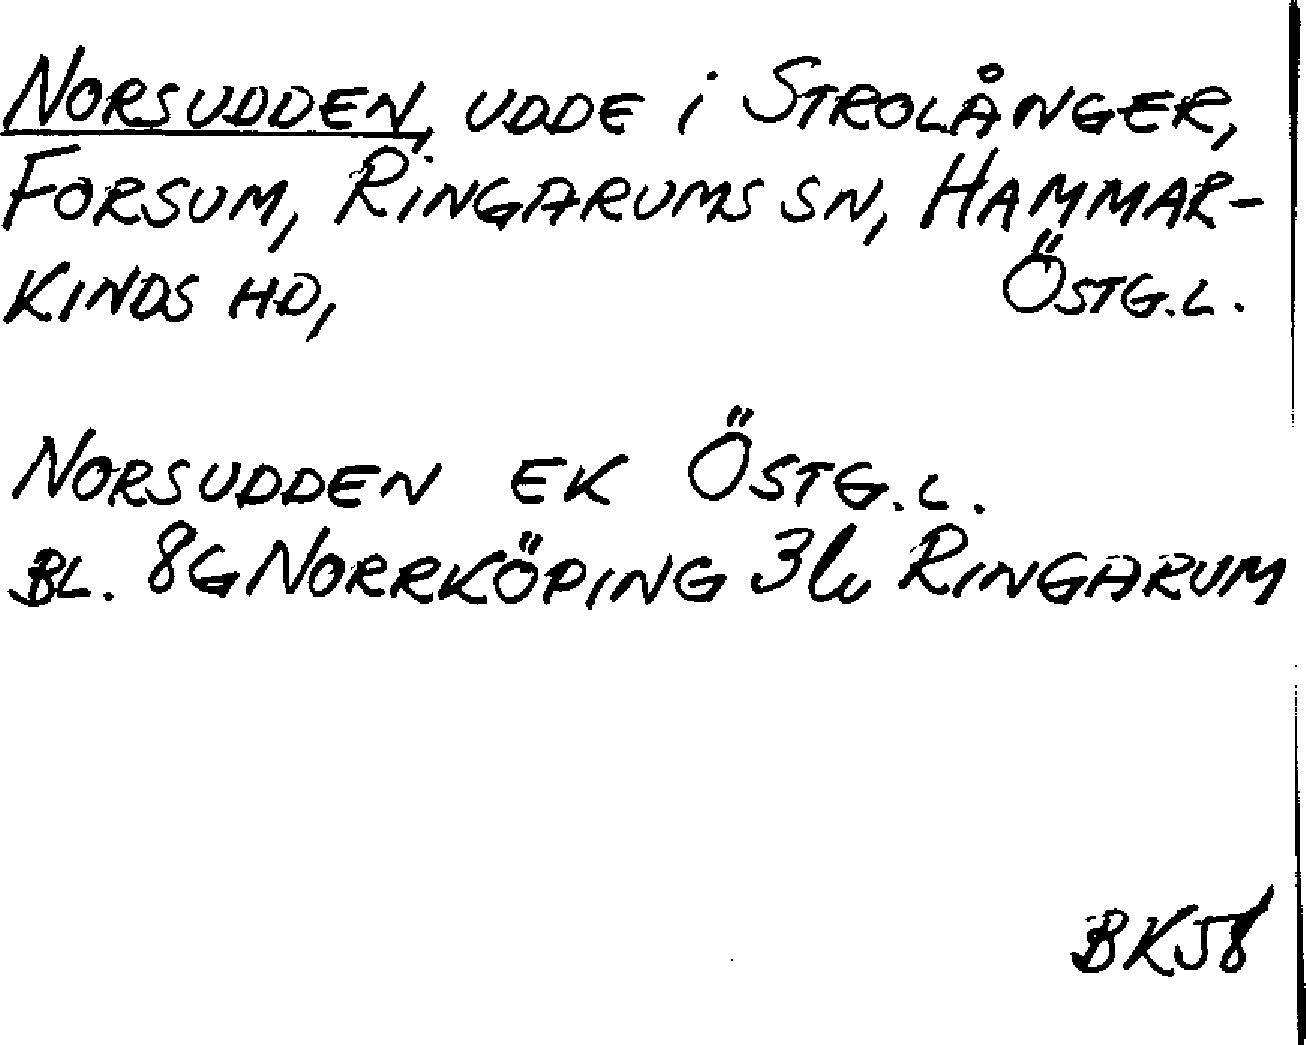 NORSUDDEN, UDDE i STROLÅNGER,
FORSUM, RINGARUMS SN, HAMMAR-
KINDS HD, ÖSTG.L.
NORSUDDEN EK ÖSTG.L.
BL. 8G NORRKÖPING 3h RINGARUM
BK58